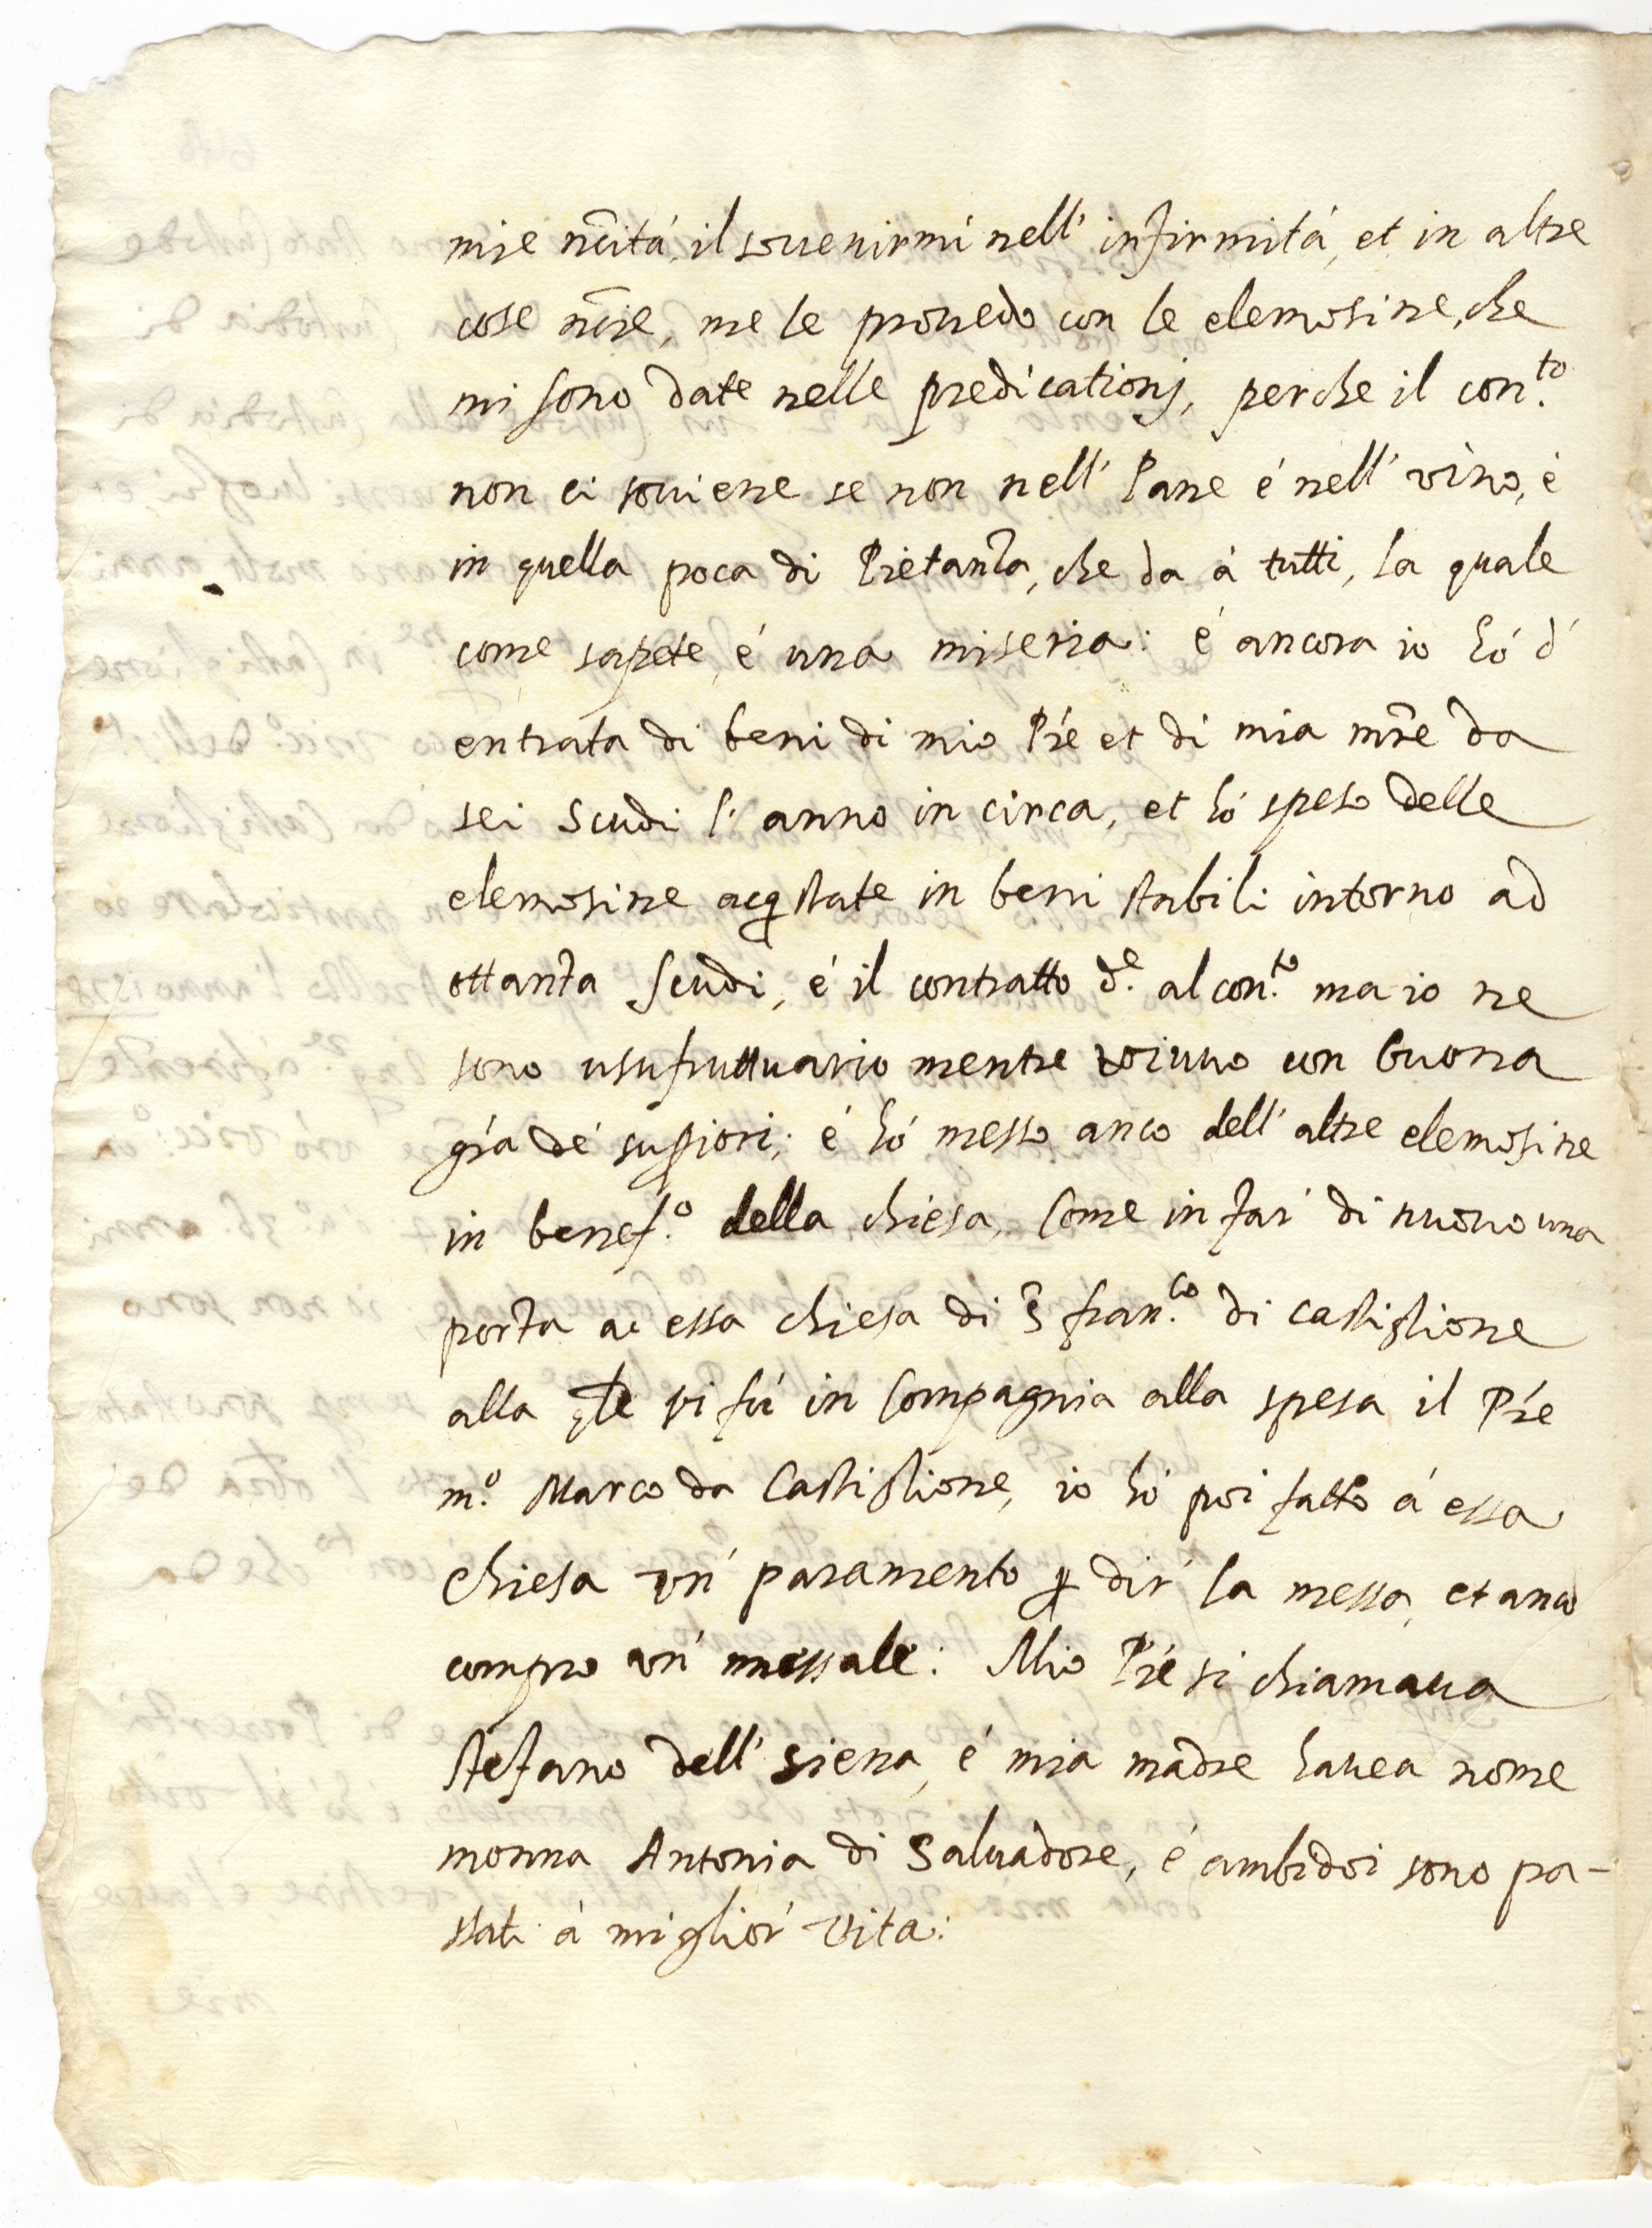 mie nc̄ità, il souuenirmi nell' infirmità, et in altre
cose nc̄rie, me le prouedo con le elemosine, che
mi sono date nelle predicationj, perche il con.to
non ci souiene se non nell' Pane é nell' vino, é
in quella poca di Pietanza, che da á tutti, la quale
come sapete, é una miseria: é ancora io hó d'
entrata di beni di mio Pr̄e et di mia mr̄e da
sei scudi l' anno in circa, et hó speso delle
elemosine acq̄state in beni stabili intorno ad
ottanta scudi, é il contratto d.e al con.to ma io ne
sono usufruttuario mentre viuuo con buona
gr̄a dé sup̱riori; é hó messo anco dell' altre elemosine
in benef.o della chiesa, Come in far' di nuouo una
porta ac essa chiesa di S̄ fran.co di castiglione
alla q̄le vi fú in Compagnia alla spesa il Pr̄e
m.o Marco da Castiglione, io hó poi fatto á essa
chiesa vn' paramento ꝑ dir' la messa, et anco
compro vn' messale: Mio Pr̄e si chiamaua
stefano dell' siena, é mia madre hauea nome
monna Antonia di Saluadore, é ambidoi sono pa-
ssati á miglior' vita: